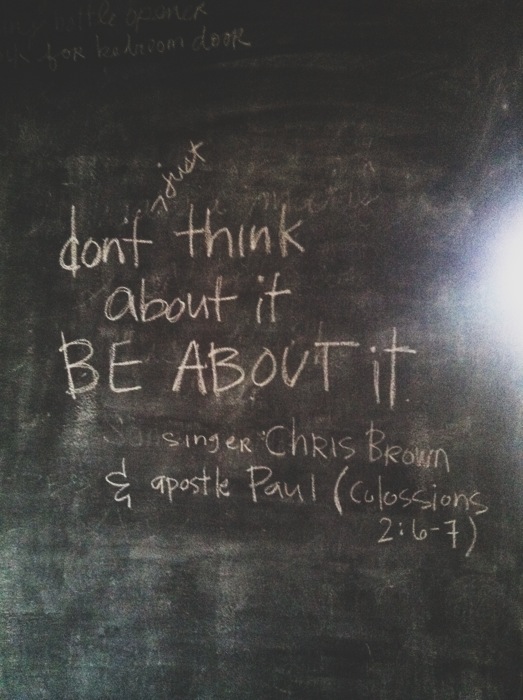 bottle opener
for bedroom door
just
don't think
about it
BE ABOUT it
singer CHRIS BROWN
& apostle Paul (Colossions
2:6-7)